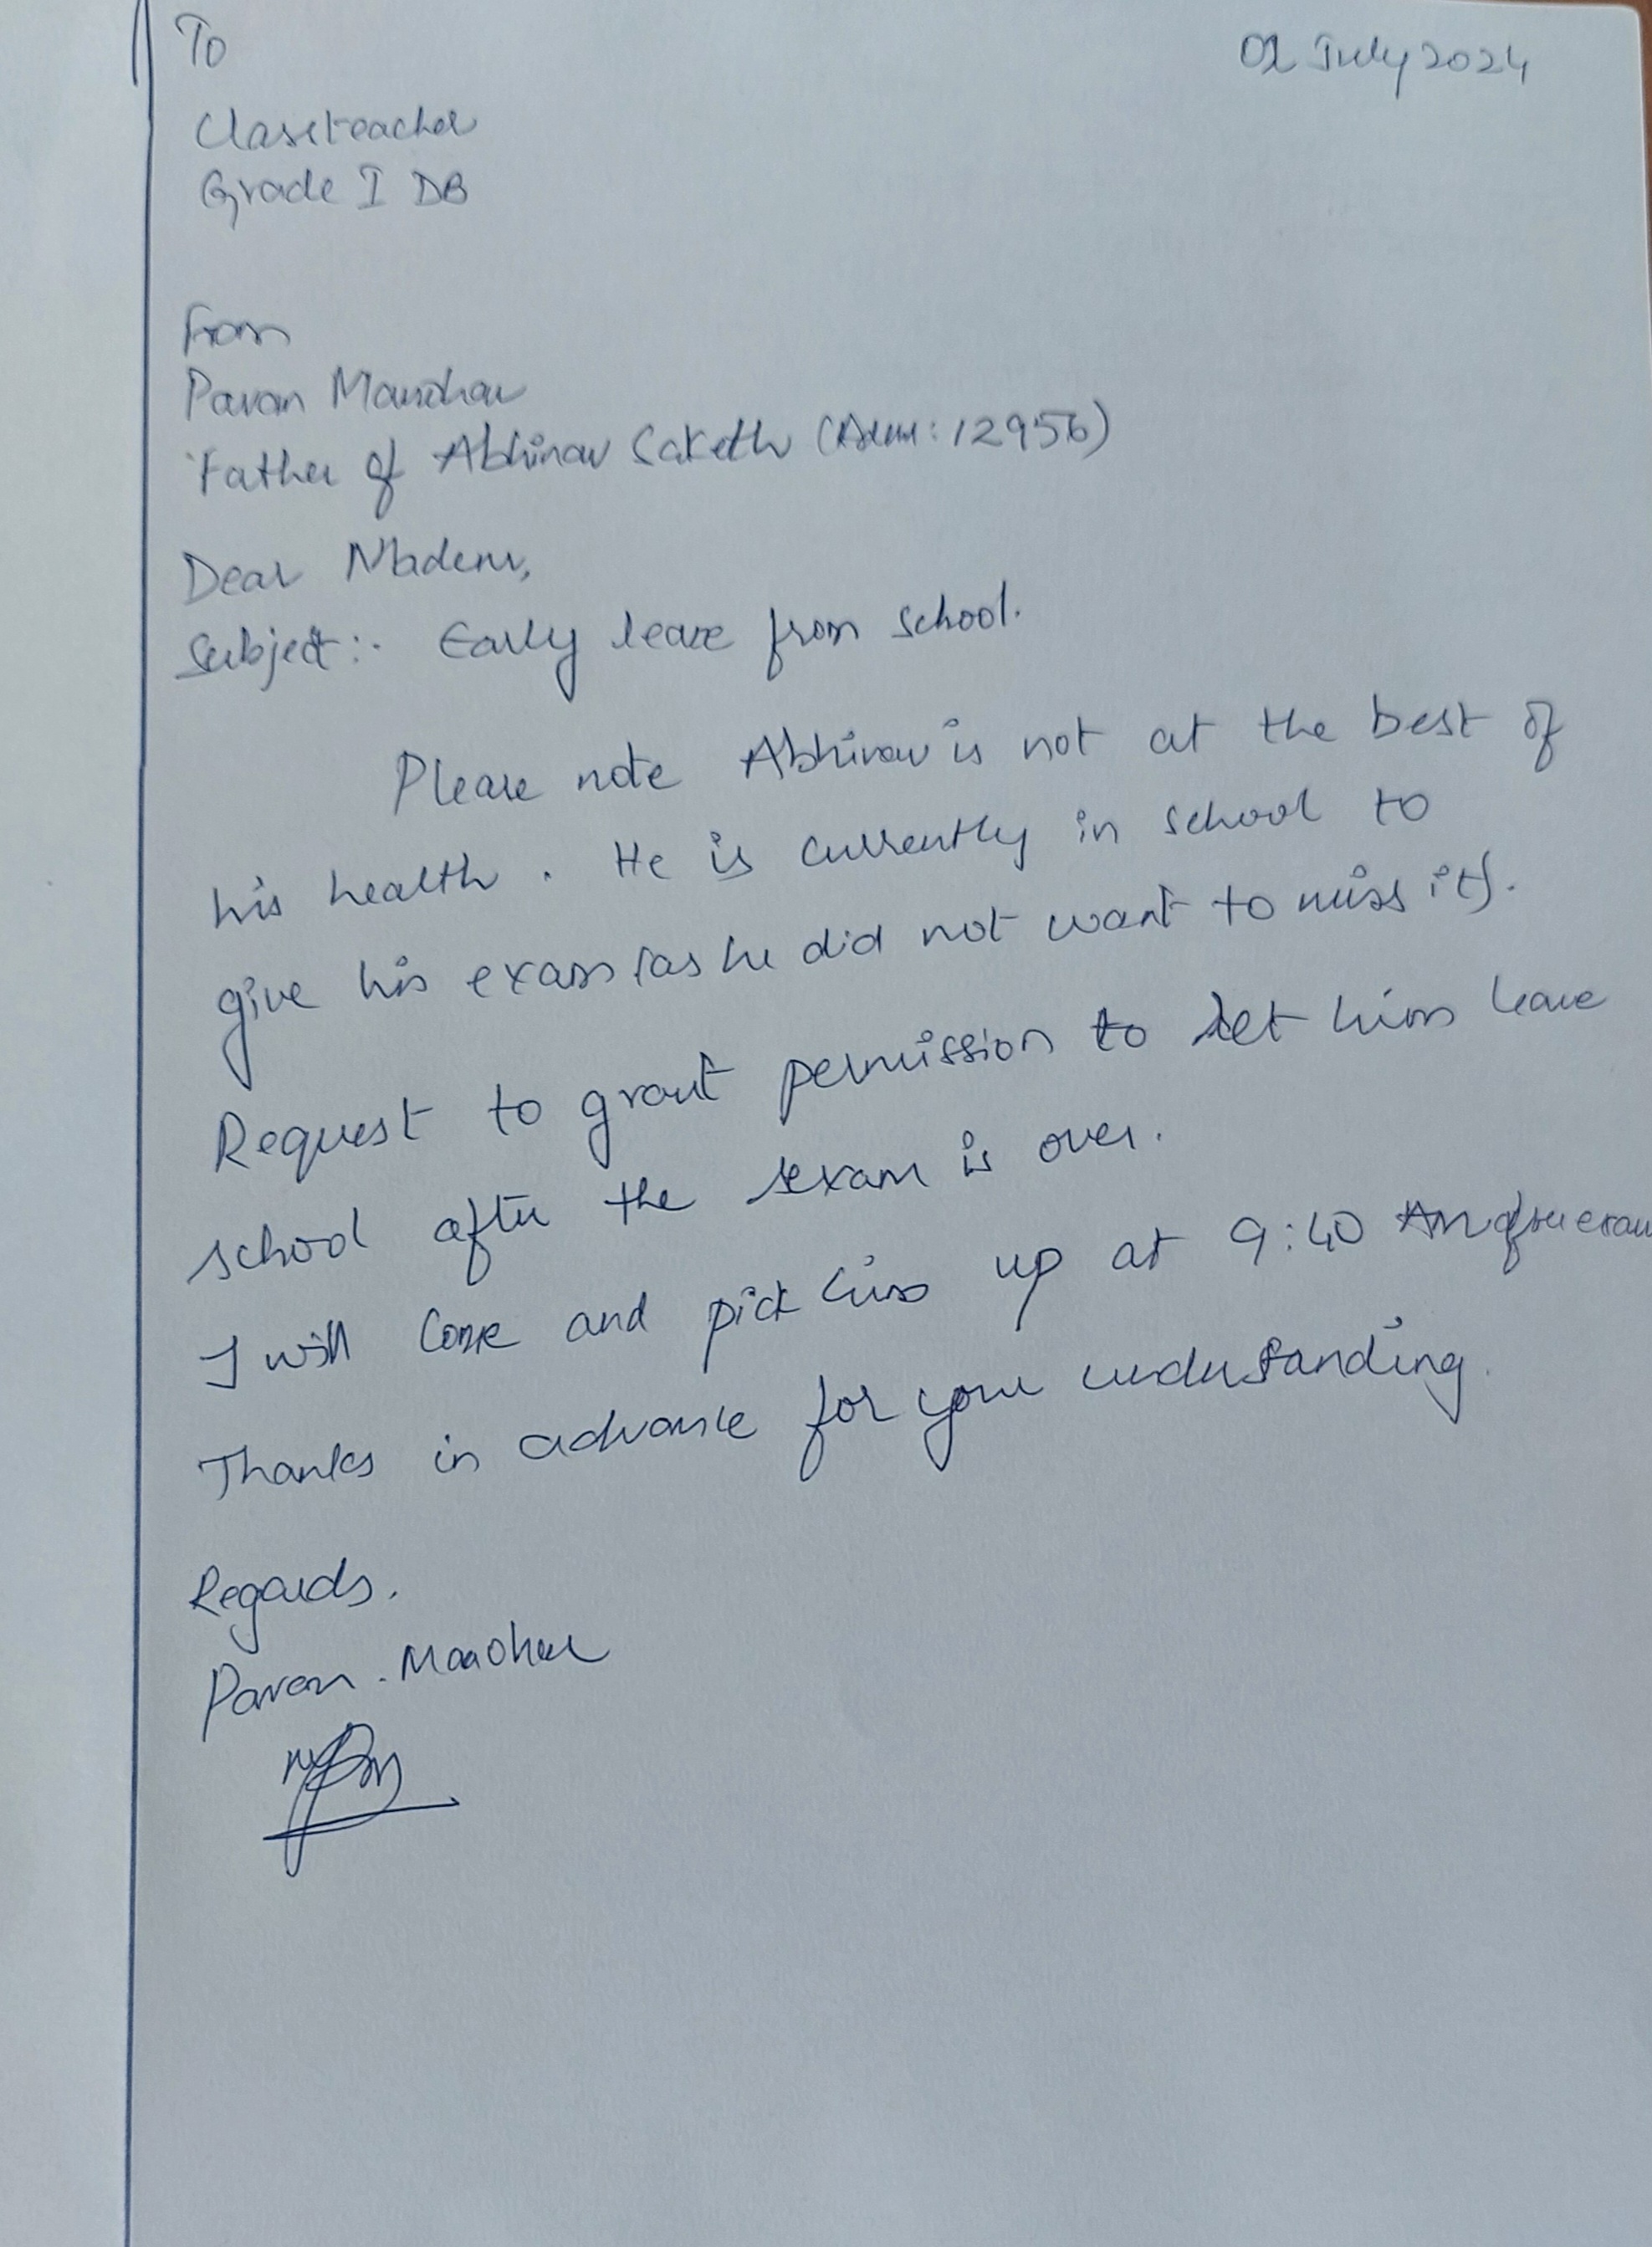 To
02 July 2024
Classteacher
Grade I DB
From
Pavan Manohar
Father of Abhinav Saketh (Adm: 12956)
Dear Madem,
Subject:- Early leave from school.
Please note Abhinav is not at the best of
his health. He is currently in school to
give his exam (as he did not want to miss it).
Request to grant permission to let him leave
school after the exam is over.
I will come and pick him up at 9:40 AM after exam
Thanks in advance for your understanding.
Regards.
Pavan. Manohar